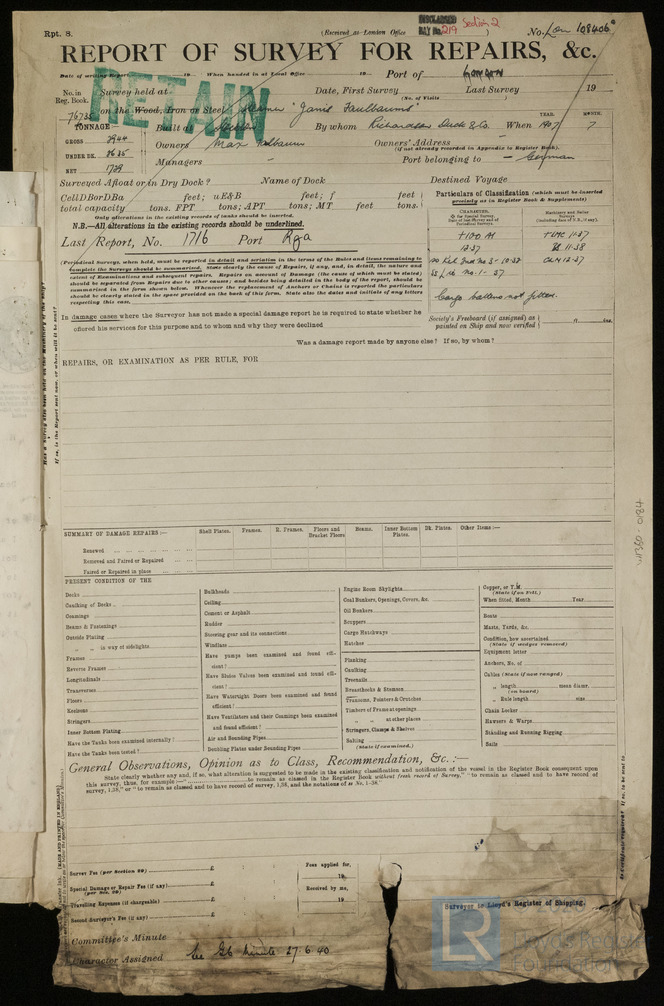 Rpt. 8.
(Received at London Office
DAY No. 219
Section 2
No. Lon 108406
REPORT OF SURVEY FOR REPAIRS, &c.
Date of writing Report 19 When handed in at Local Office 19 Port of London
RETAIN
No. in Reg. Book. Survey held at Date, First Survey Last Survey 19
(No. of Visits
76735 on the Wood, Iron or Steel Steamer "Janis Faulbaums"
TONNAGE
GROSS
UNDER DK. 3635
NET
Built at By whom Richardson Duck & Co. When 1907 7
YEAR. MONTH.
Owners Max Faulbaum Owners' Address
(if not already recorded in Appendix to Register Book).
Managers Port belonging to German
Surveyed Afloat or in Dry Dock? Name of Dock Destined Voyage
Cell D Bor D Ba feet; uE&B feet; f feet
total capacity tons. FPT tons; APT tons; MT feet tons.
Only alterations in the existing records of tanks should be inserted.
N.B.—All alterations in the existing records should be underlined.
Last Report, No. 1716 Port Riga
Particulars of Classification (which must be inserted precisely as in Register Book & Supplements)
+100 A1
12.37
BS 11.38
Cargo battens not fitted.
(Periodical Surveys, when held, must be reported in detail and seriatim in terms of the Rules and items remaining to complete the Surveys should be summarized. State clearly the cause of Repairs, if any, and, in detail, the nature and extent of Examinations and subsequent repairs. Repairs on account of Damage (the cause of which must be stated) should be separated from Repairs due to other causes; and besides being detailed in the body of the report, should be summarized in the form shewn below. Whenever the replacement of Anchors or Chains is reported the particulars should be clearly stated in the space provided on the back of this form. State also the dates and initials of any letters respecting this case.
In damage cases where the Surveyor has not made a special damage report he is required to state whether he
offered his services for this purpose and to whom and why they were declined
Society's Freeboard (if assigned) as painted on Ship and now verified
Was a damage report made by anyone else? If so, by whom?
REPAIRS, OR EXAMINATION AS PER RULE, FOR
SUMMARY OF DAMAGE REPAIRS:—
Shell Plates. Frames. R. Frames. Floors and Bracket Floors Beams. Inner Bottom Plates. Dk. Plates. Other Items:—
Renewed
Removed and Faired or Repaired
Faired or Repaired in place
PRESENT CONDITION OF THE
Decks
Caulking of Decks
Coamings
Beams & Fastenings
Outside Plating
" " in way of sidelights
Frames
Reverse Frames
Longitudinals
Transverses
Floors
Keelsons
Stringers
Inner Bottom Plating
Have the Tanks been examined internally?
Have the Tanks been tested?
Bulkheads
Ceiling
Cement or Asphalt
Rudder
Steering gear and its connections
Windlass
Have pumps been examined and found efficient?
Have Sluice Valves been examined and found efficient?
Have Watertight Doors been examined and found efficient?
Have Ventilators and their Coamings been examined and found efficient?
Air and Sounding Pipes
Doubling Plates under Sounding Pipes
Engine Room Skylights
Coal Bunkers, Openings, Covers, &c.
Oil Bunkers
Scuppers
Cargo Hatchways
Hatches
Planking
Caulking
Treenails
Breasthooks & Stemson
Transoms, Pointers & Crutches
Timbers of Frame at openings
" " at other places
Stringers, Clamps & Shelves
Salting
(State if examined.)
Copper, or Y.M.
(State if on Felt.)
When fitted, Month Year
Boats
Masts, Yards, &c.
Condition, how ascertained
(State if wedges removed)
Equipment letter
Anchors, No. of
Cables (State if now ranged)
" length mean diamr.
(on board)
" Rule length size
Chain Locker
Hawsers & Warps
Standing and Running Rigging
Sails
General Observations, Opinion as to Class, Recommendation, &c.:—
State clearly whether any, and if so, what alteration is suggested to be made in the existing classification and notification of the vessel in the Register Book consequent upon
this survey, thus, for example:— to remain as classed in the Register Book without fresh record of Survey," "to remain as classed and to have record of
survey, 1,38," or "to remain as classed and to have record of survey, 1,38, and the notations of ss No. 1–38."
Survey Fee (per Section 29) £
Special Damage or Repair Fee (if any) £
(per Sec. 29)
Travelling Expenses (if chargeable) £
Second Surveyor's Fee (if any) £
Fees applied for,
19
Received by me,
19
Surveyor to Lloyd's Register of Shipping.
Committee's Minute
Character Assigned See Minute 27.6.40
LR
Lloyd's Register
Foundation
W1350-0184